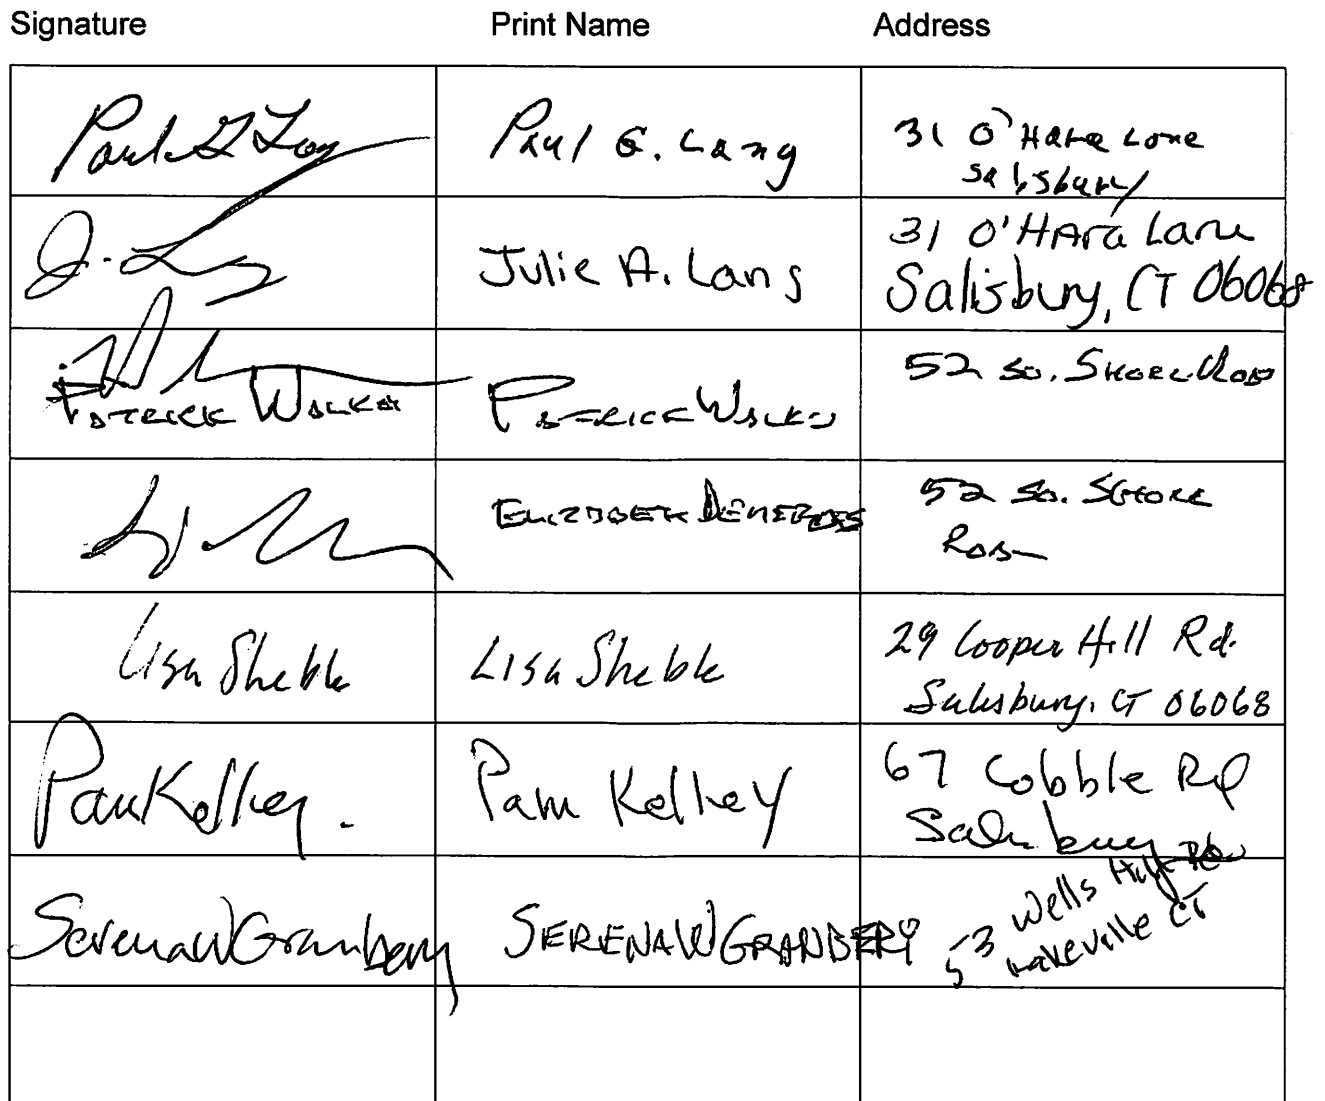 Signature Print Name Address
Paul G Lang Paul G. Lang 31 O'Hara Lane
Salisbury
J. Lang Julie A. Lang 31 O'Hara Lane
Salisbury, CT 06068
Patrick Walker Patrick Walker 52 So. Shore Road
52 So. Shore
Road
Lisa Sheble Lisa Sheble 29 Cooper Hill Rd.
Salisbury, CT 06068
Pam Kelley. Pam Kelley 67 Cobble Rd
Salisbury
Serena W Granbery SERENA W GRANBERY 53 Wells Hill Rd
Lakeville CT